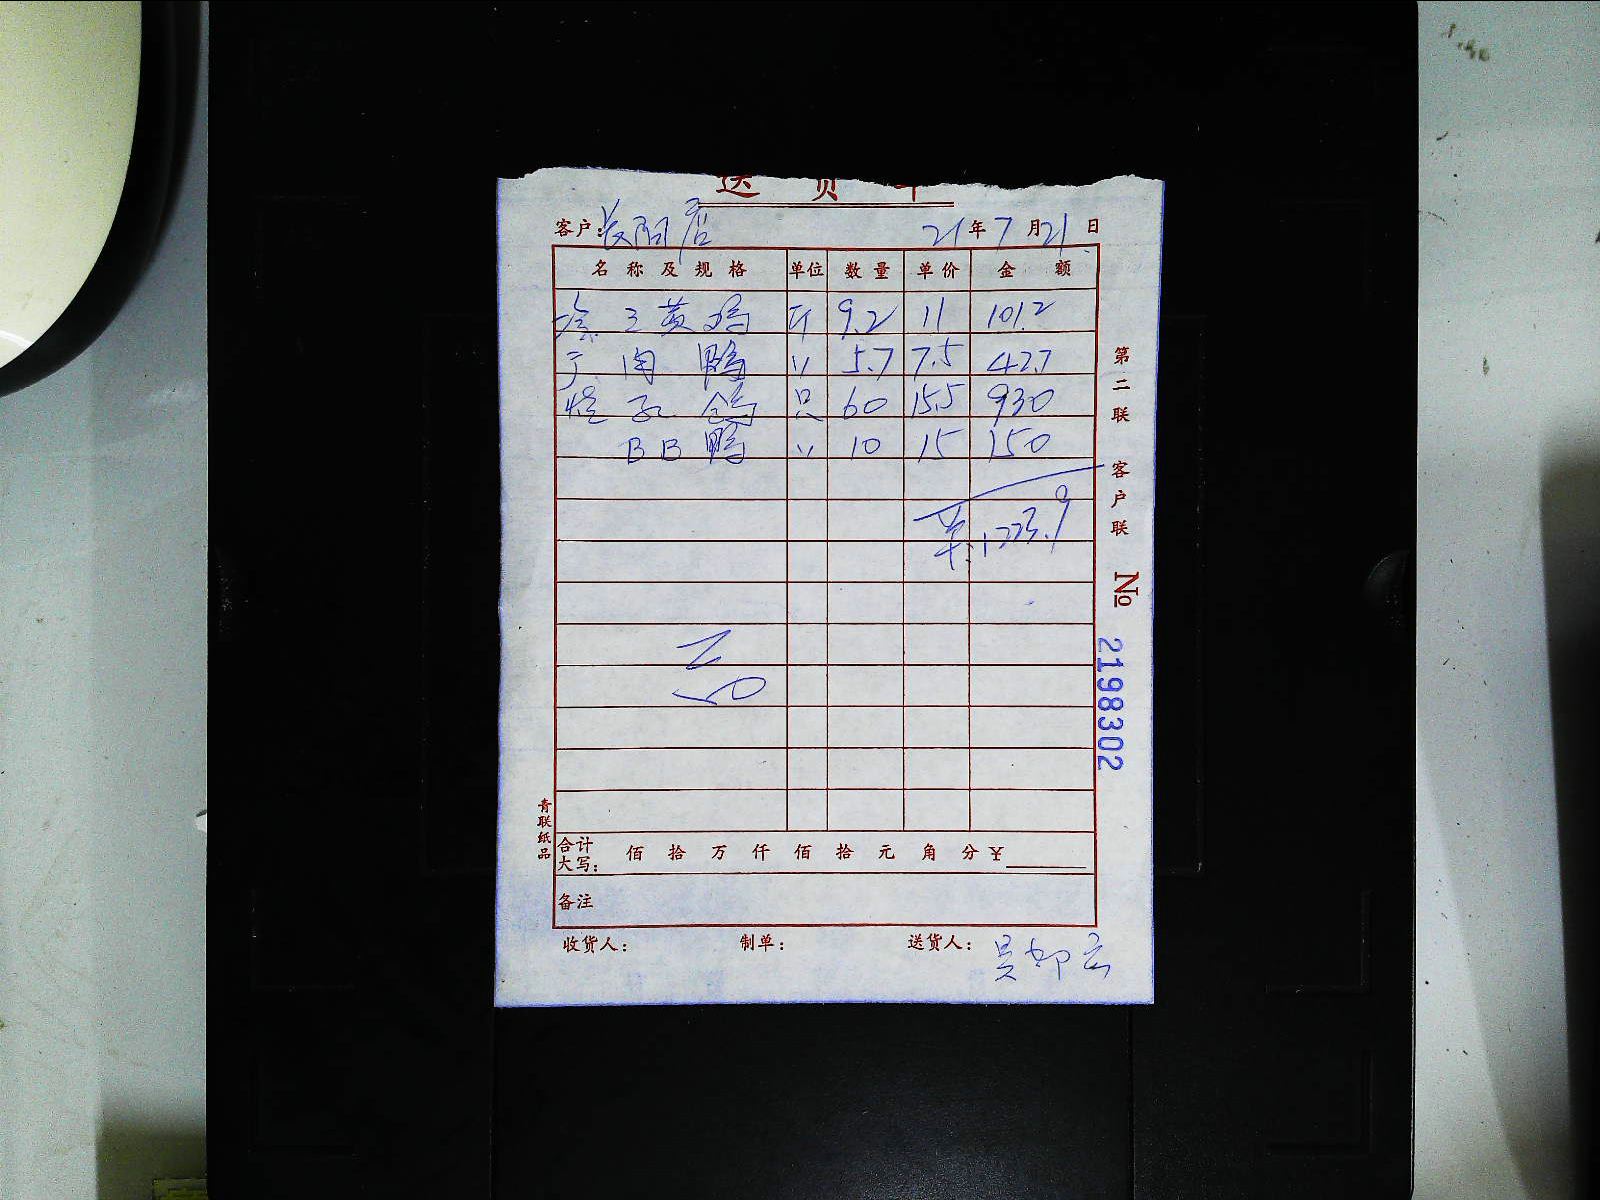 送货单
客户: 长阳店 21年7月21日
名称及规格 单位 数量 单价 金额
三黄鸡 斤 9.2 11 101.2
肉鸭 〃 5.7 7.5 42.7
鸽 只 60 15.5 930
BB鸭 〃 10 15 150
¥:1223.9
合计大写: 佰 拾 万 仟 佰 拾 元 角 分 ¥
备注
收货人: 制单: 送货人:
第二联 客户联
No 2198302
青联纸品